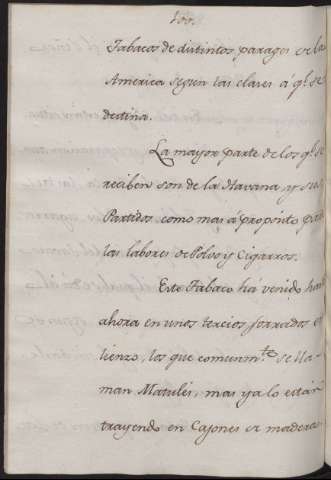 100.
Tabacos de distintos parages de la
America segun las clases á qᵉ. se
destina.
La mayor parte de los qᵉ. se
reciben son de la Havana, y sus
Partidos como mas á proposito para
las labores de Polvo y Cigarros.
Este Tabaco há venido hasta
ahora en unos tercios forrados en
lienzo, los que comunmᵗᵉ. se lla-
man Matules, mas ya lo están
trayendo en Cajones de madera